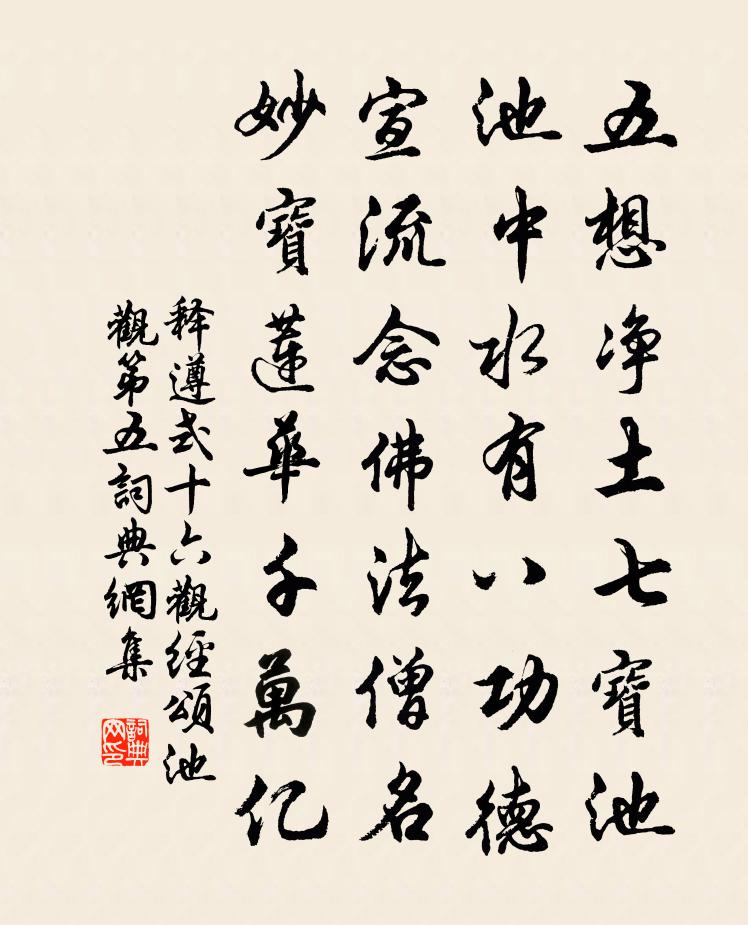 五想净土七寶池
池中水有八功德
宣流念佛法僧名
妙寶蓮華千萬亿
释遵式十六觀經頌池
觀第五詞典網集
詞典網印